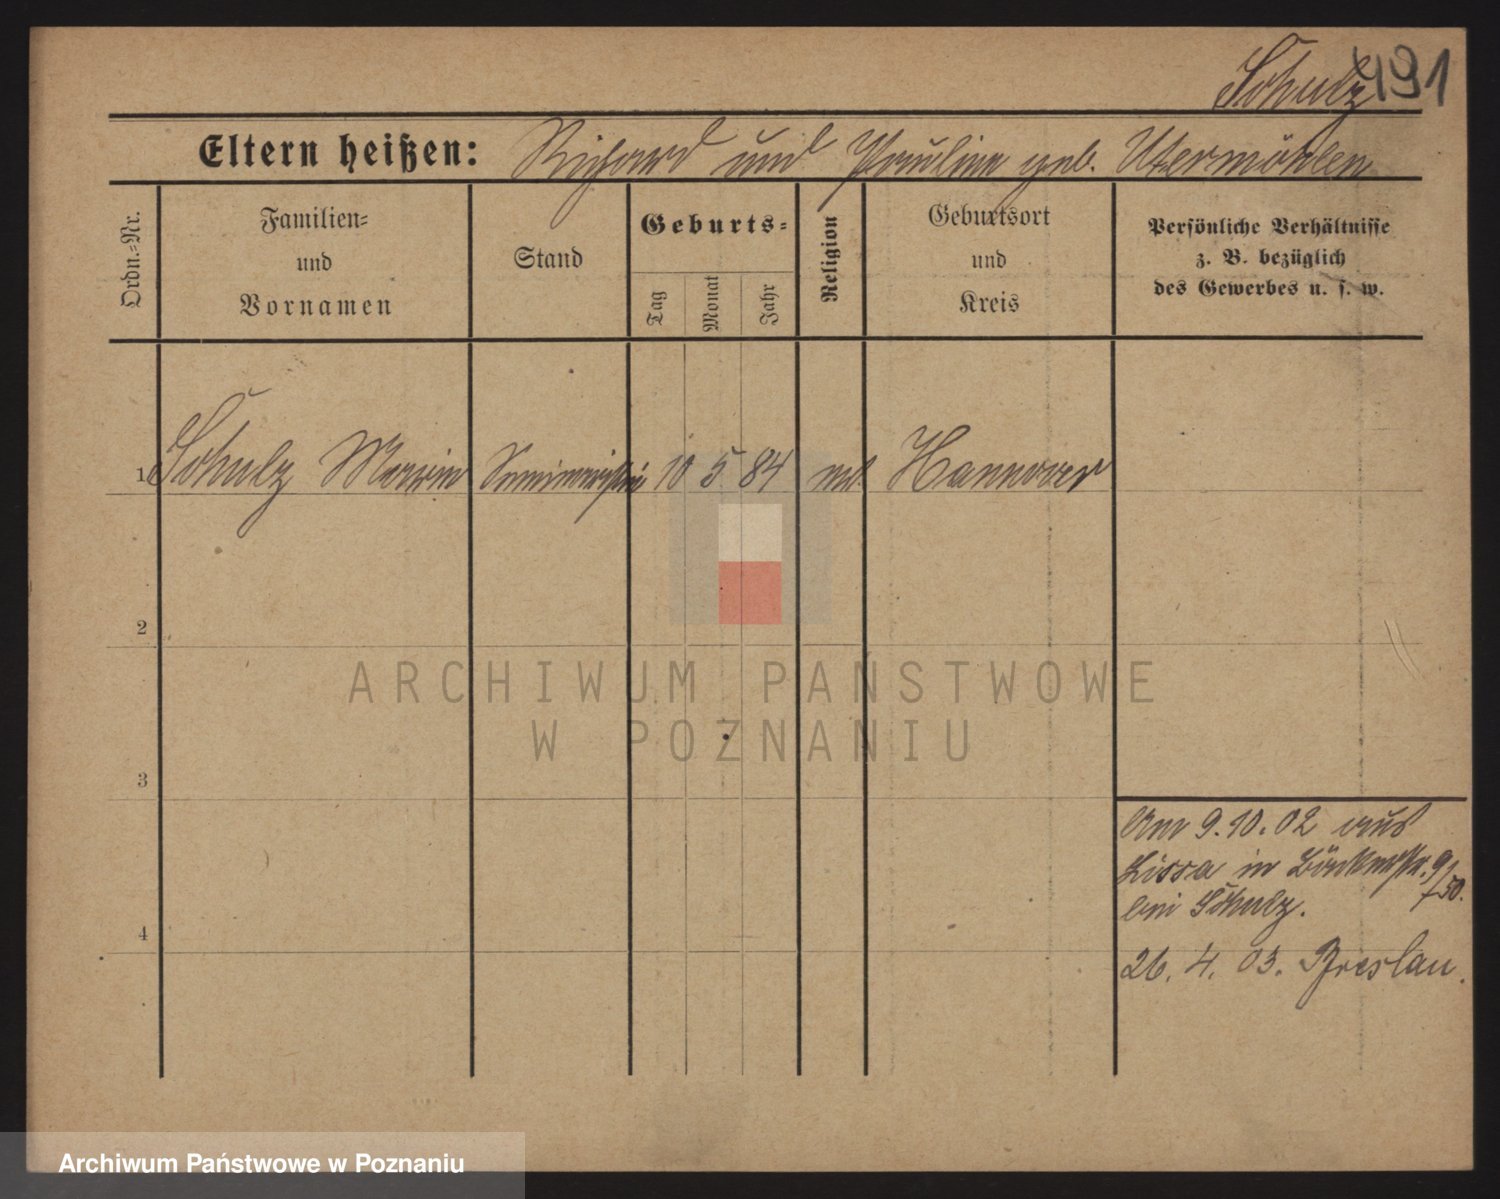 Schulz 491
Eltern heißen: Richard und Pauline geb. Utermöhlen
Ordn.-Nr.
Familien-
und
Vornamen
Stand
Geburts-
Tag
Monat
Jahr
Religion
Geburtsort
und
Kreis
Persönliche Verhältnisse
z. B. bezüglich
des Gewerbes u. s. w.
1 Schulz Marie Seminaristin 10 5 84 Hannover
2
ARCHIWUM PAŃSTWOWE
W POZNANIU
3
Am 9.10.02 aus
Lissa in 9/50.
bei Schulz.
4
26. 4. 03. Breslau.
Archiwum Państwowe w Poznaniu